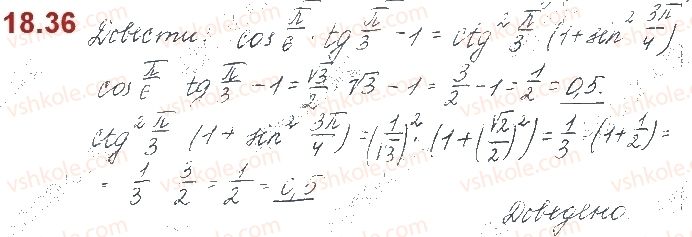 18.36 Довести: cos π/6 · tg π/3 − 1 = ctg² π/3 (1 + sin² 3π/4)
cos π/6 tg π/3 − 1 = √3/2 · √3 − 1 = 3/2 − 1 = 1/2 = 0,5.
ctg² π/3 (1 + sin² 3π/4) = (1/√3)² · (1 + (√2/2)²) = 1/3 · (1 + 1/2) =
= 1/3 3/2 = 1/2 = 0,5
Доведено.
vshkole.com